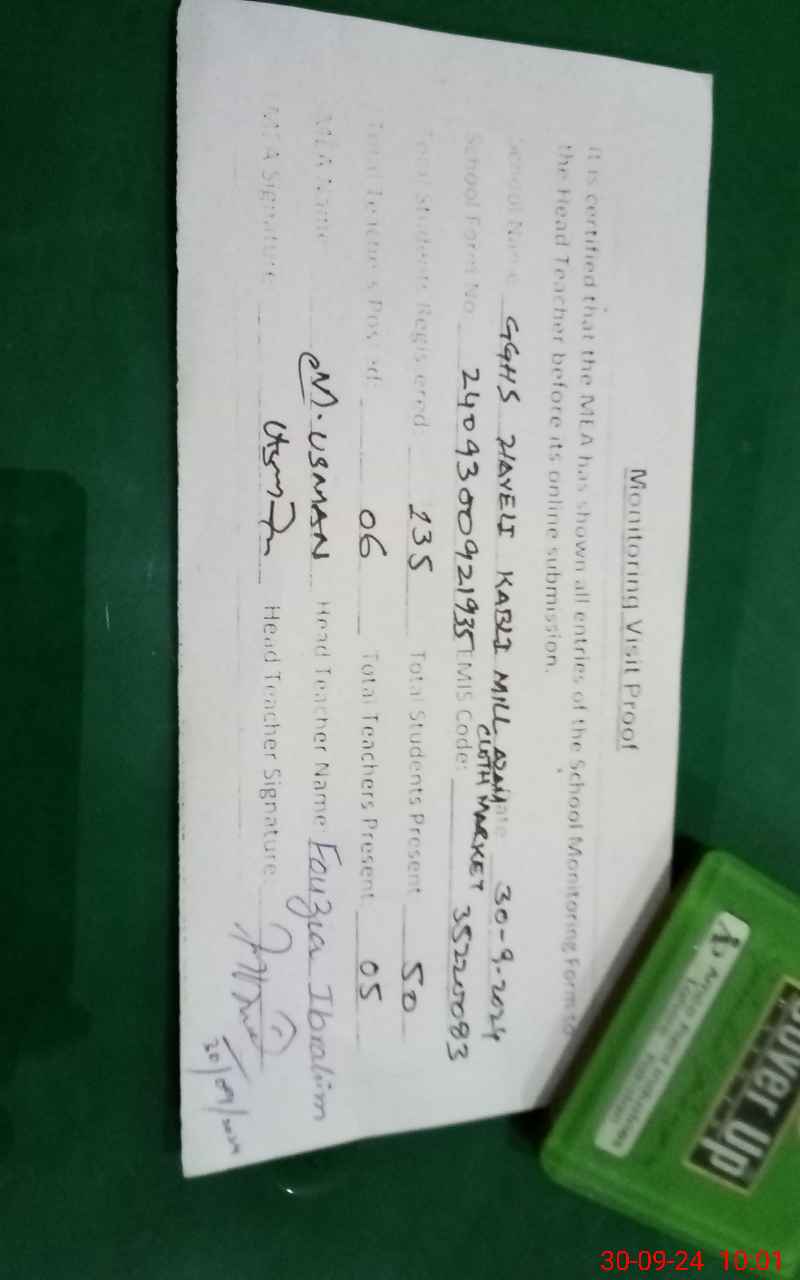 Monitoring Visit Proof
It is certified that the MEA has shown all entries of the School Monitoring Form to
the Head Teacher before its online submission.
School Name GGHS HAVELI KABLI MILL Date 30-9-2024
CLOTH MARKET
School Form No: 24093000921935 EMIS Code: 35220083
Total Students Registered: 235 Total Students Present 50
Total Teachers Posted: 06 Total Teachers Present 05
MEA Name M. USMAN Head Teacher Name: Fouzia Ibrahim
MEA Signature: Usman Head Teacher Signature:
30/09/2024
over Up
30-09-24 10:01